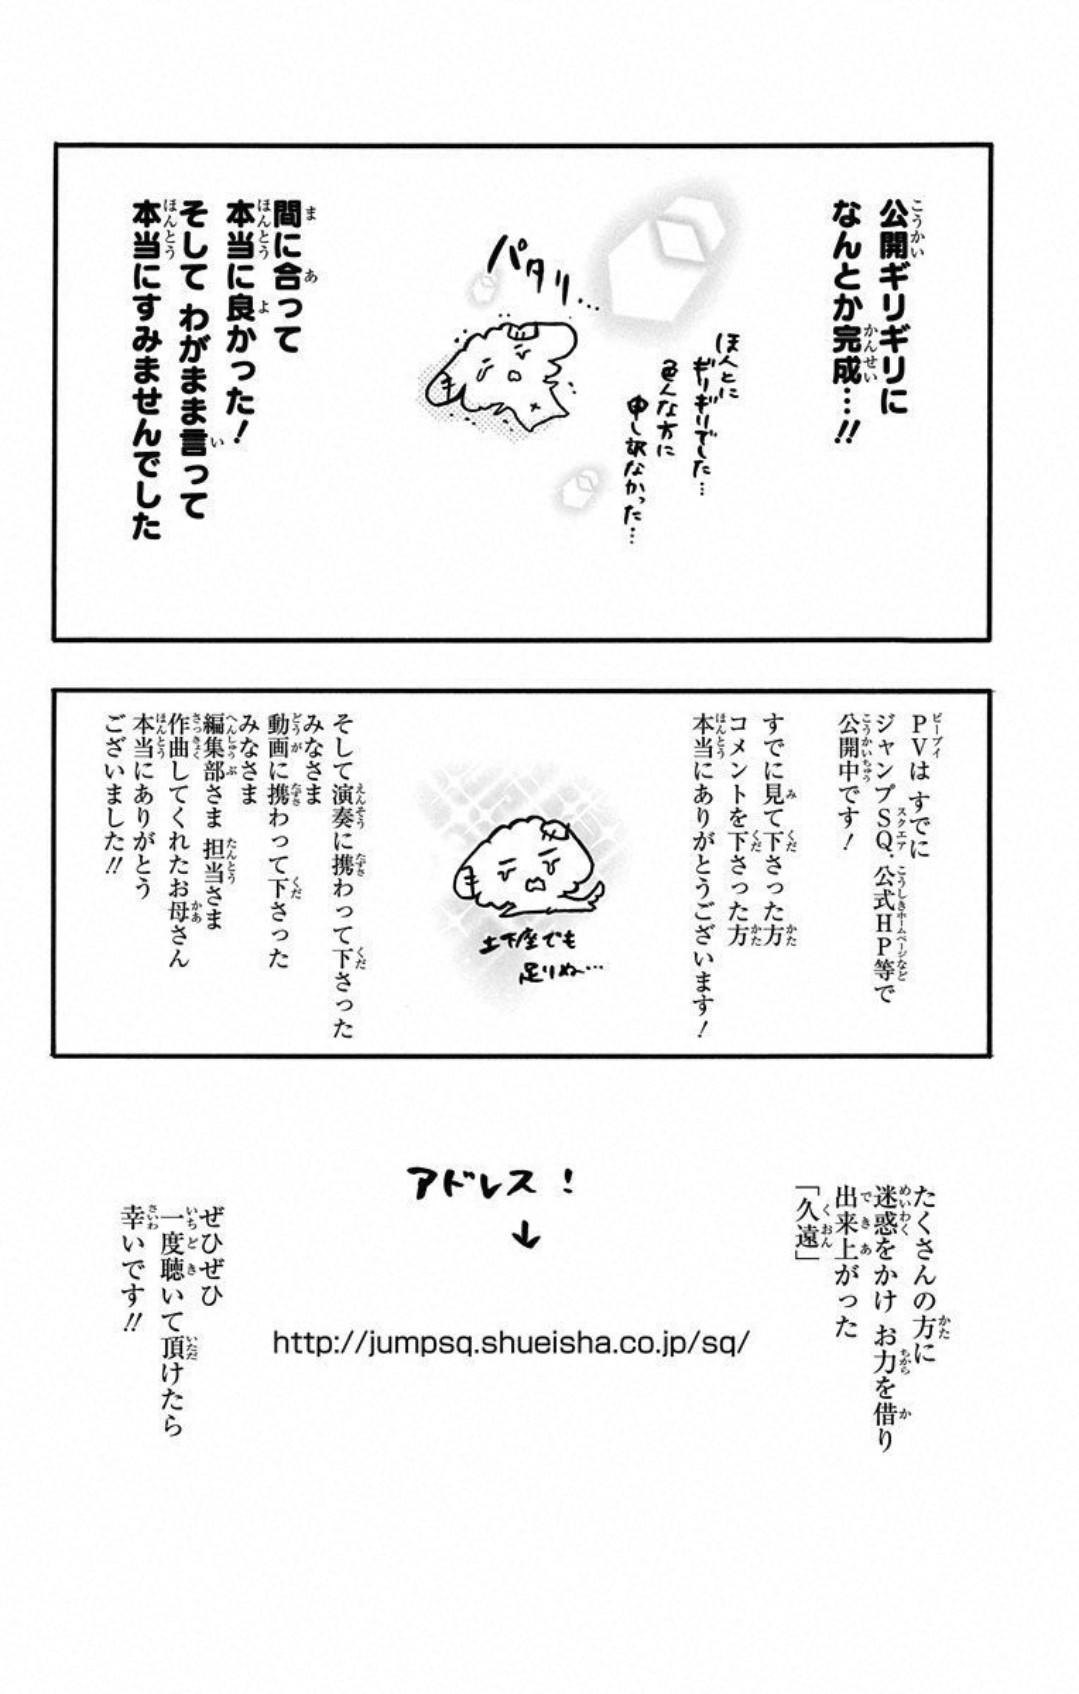 公開ギリギリに
なんとか完成…!!
ほんとに
ギリギリでした…
色んな方に
申し訳なかった…
パタリ…
間に合って
本当に良かった!
そして わがまま言って
本当にすみませんでした
PVは すでに
ジャンプSQ.公式HP等で
公開中です!
すでに見て下さった方
コメントを下さった方
本当にありがとうございます!
土下座でも
足りぬ…
そして演奏に携わって下さった
みなさま
動画に携わって下さった
みなさま
編集部さま 担当さま
作曲してくれたお母さん
本当にありがとう
ございました!!
たくさんの方に
迷惑をかけ お力を借り
出来上がった
「久遠」
アドレス!
↓
http://jumpsq.shueisha.co.jp/sq/
ぜひぜひ
一度聴いて頂けたら
幸いです!!